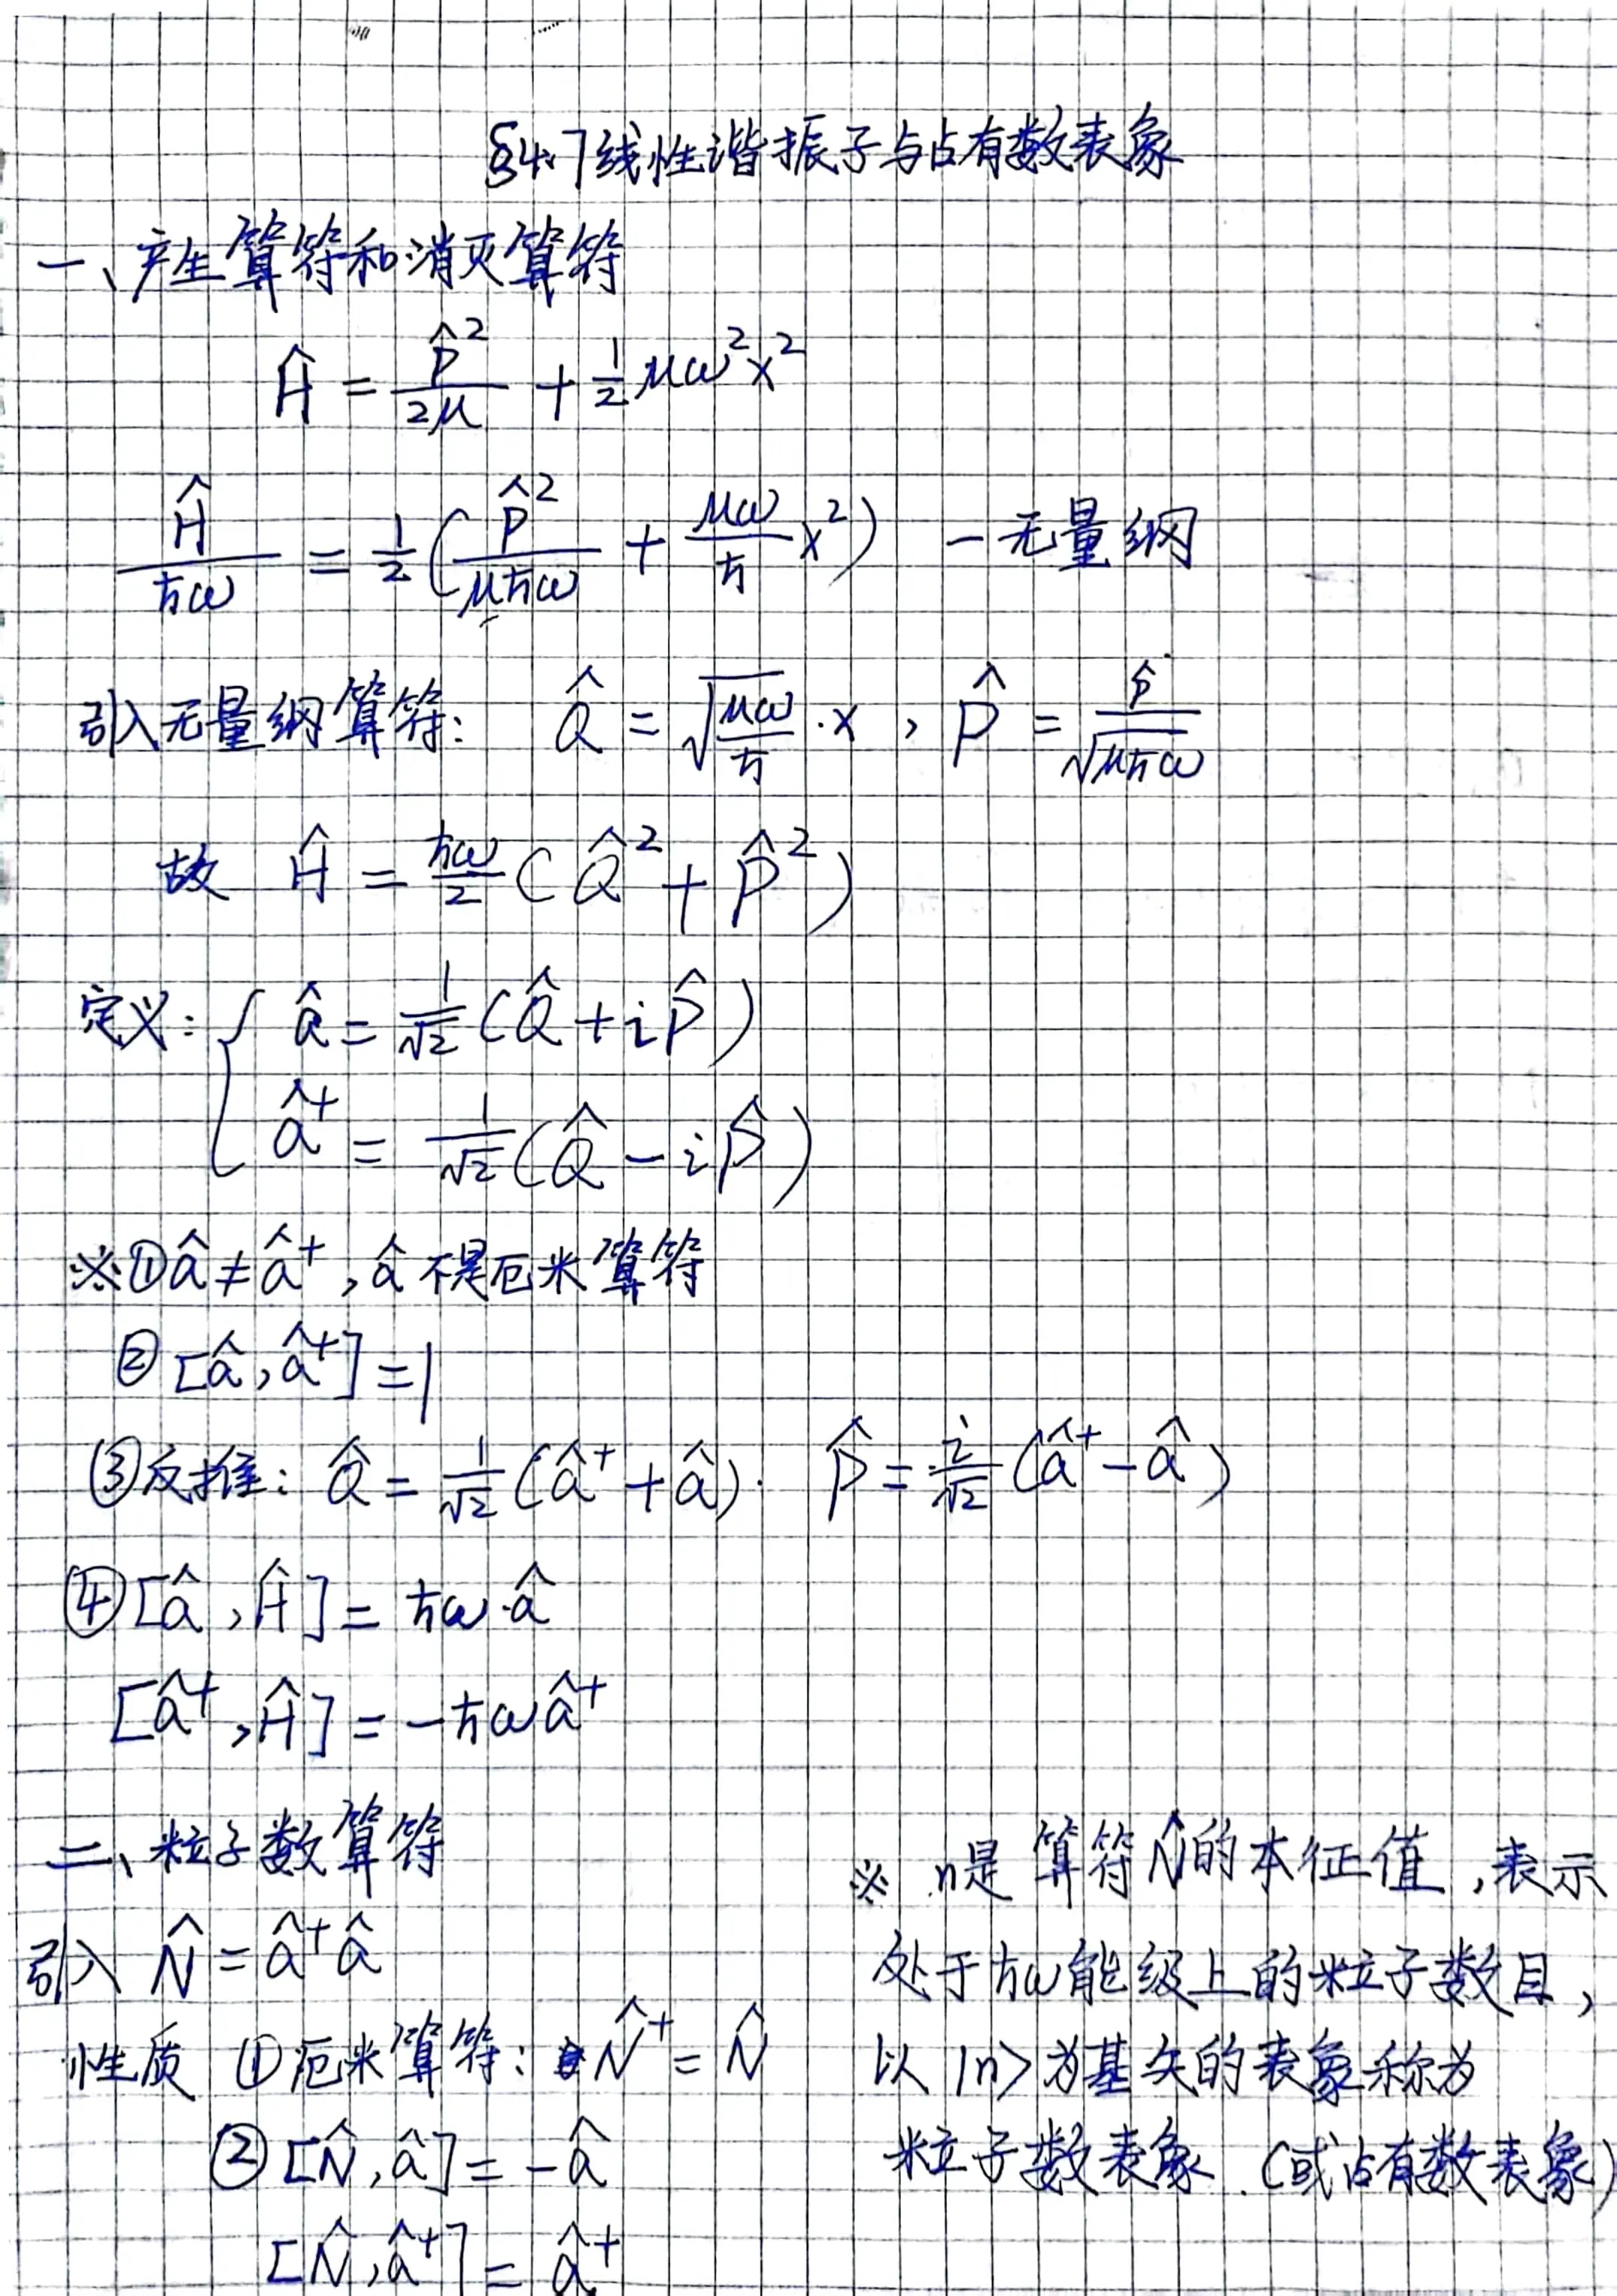 §4.7线性谐振子与占有数表象
一、产生算符和消灭算符
Ĥ = p̂²/2μ + ½μω²x²
Ĥ/ħω = ½(p̂²/μħω + μω/ħ x²) —无量纲
引入无量纲算符: Q̂ = √(μω/ħ)·x , P̂ = p̂/√(μħω)
故 Ĥ = ħω/2 (Q̂² + P̂²)
定义: { â = 1/√2 (Q̂ + iP̂)
â⁺ = 1/√2 (Q̂ − iP̂)
※①â ≠ â⁺ , â 不是厄米算符
②[â, â⁺] = 1
③反推: Q̂ = 1/√2 (â⁺ + â). P̂ = i/√2 (â⁺ − â)
④[â , Ĥ] = ħω·â
[â⁺, Ĥ] = −ħωâ⁺
二、粒子数算符
引入 N̂ = â⁺â
性质 ①厄米算符: N̂⁺ = N̂
②[N̂, â] = −â
[N̂, â⁺] = â⁺
※ n是算符N̂的本征值 ,表示
处于ħω能级上的粒子数目,
以 |n> 为基矢的表象称为
粒子数表象.(或占有数表象)